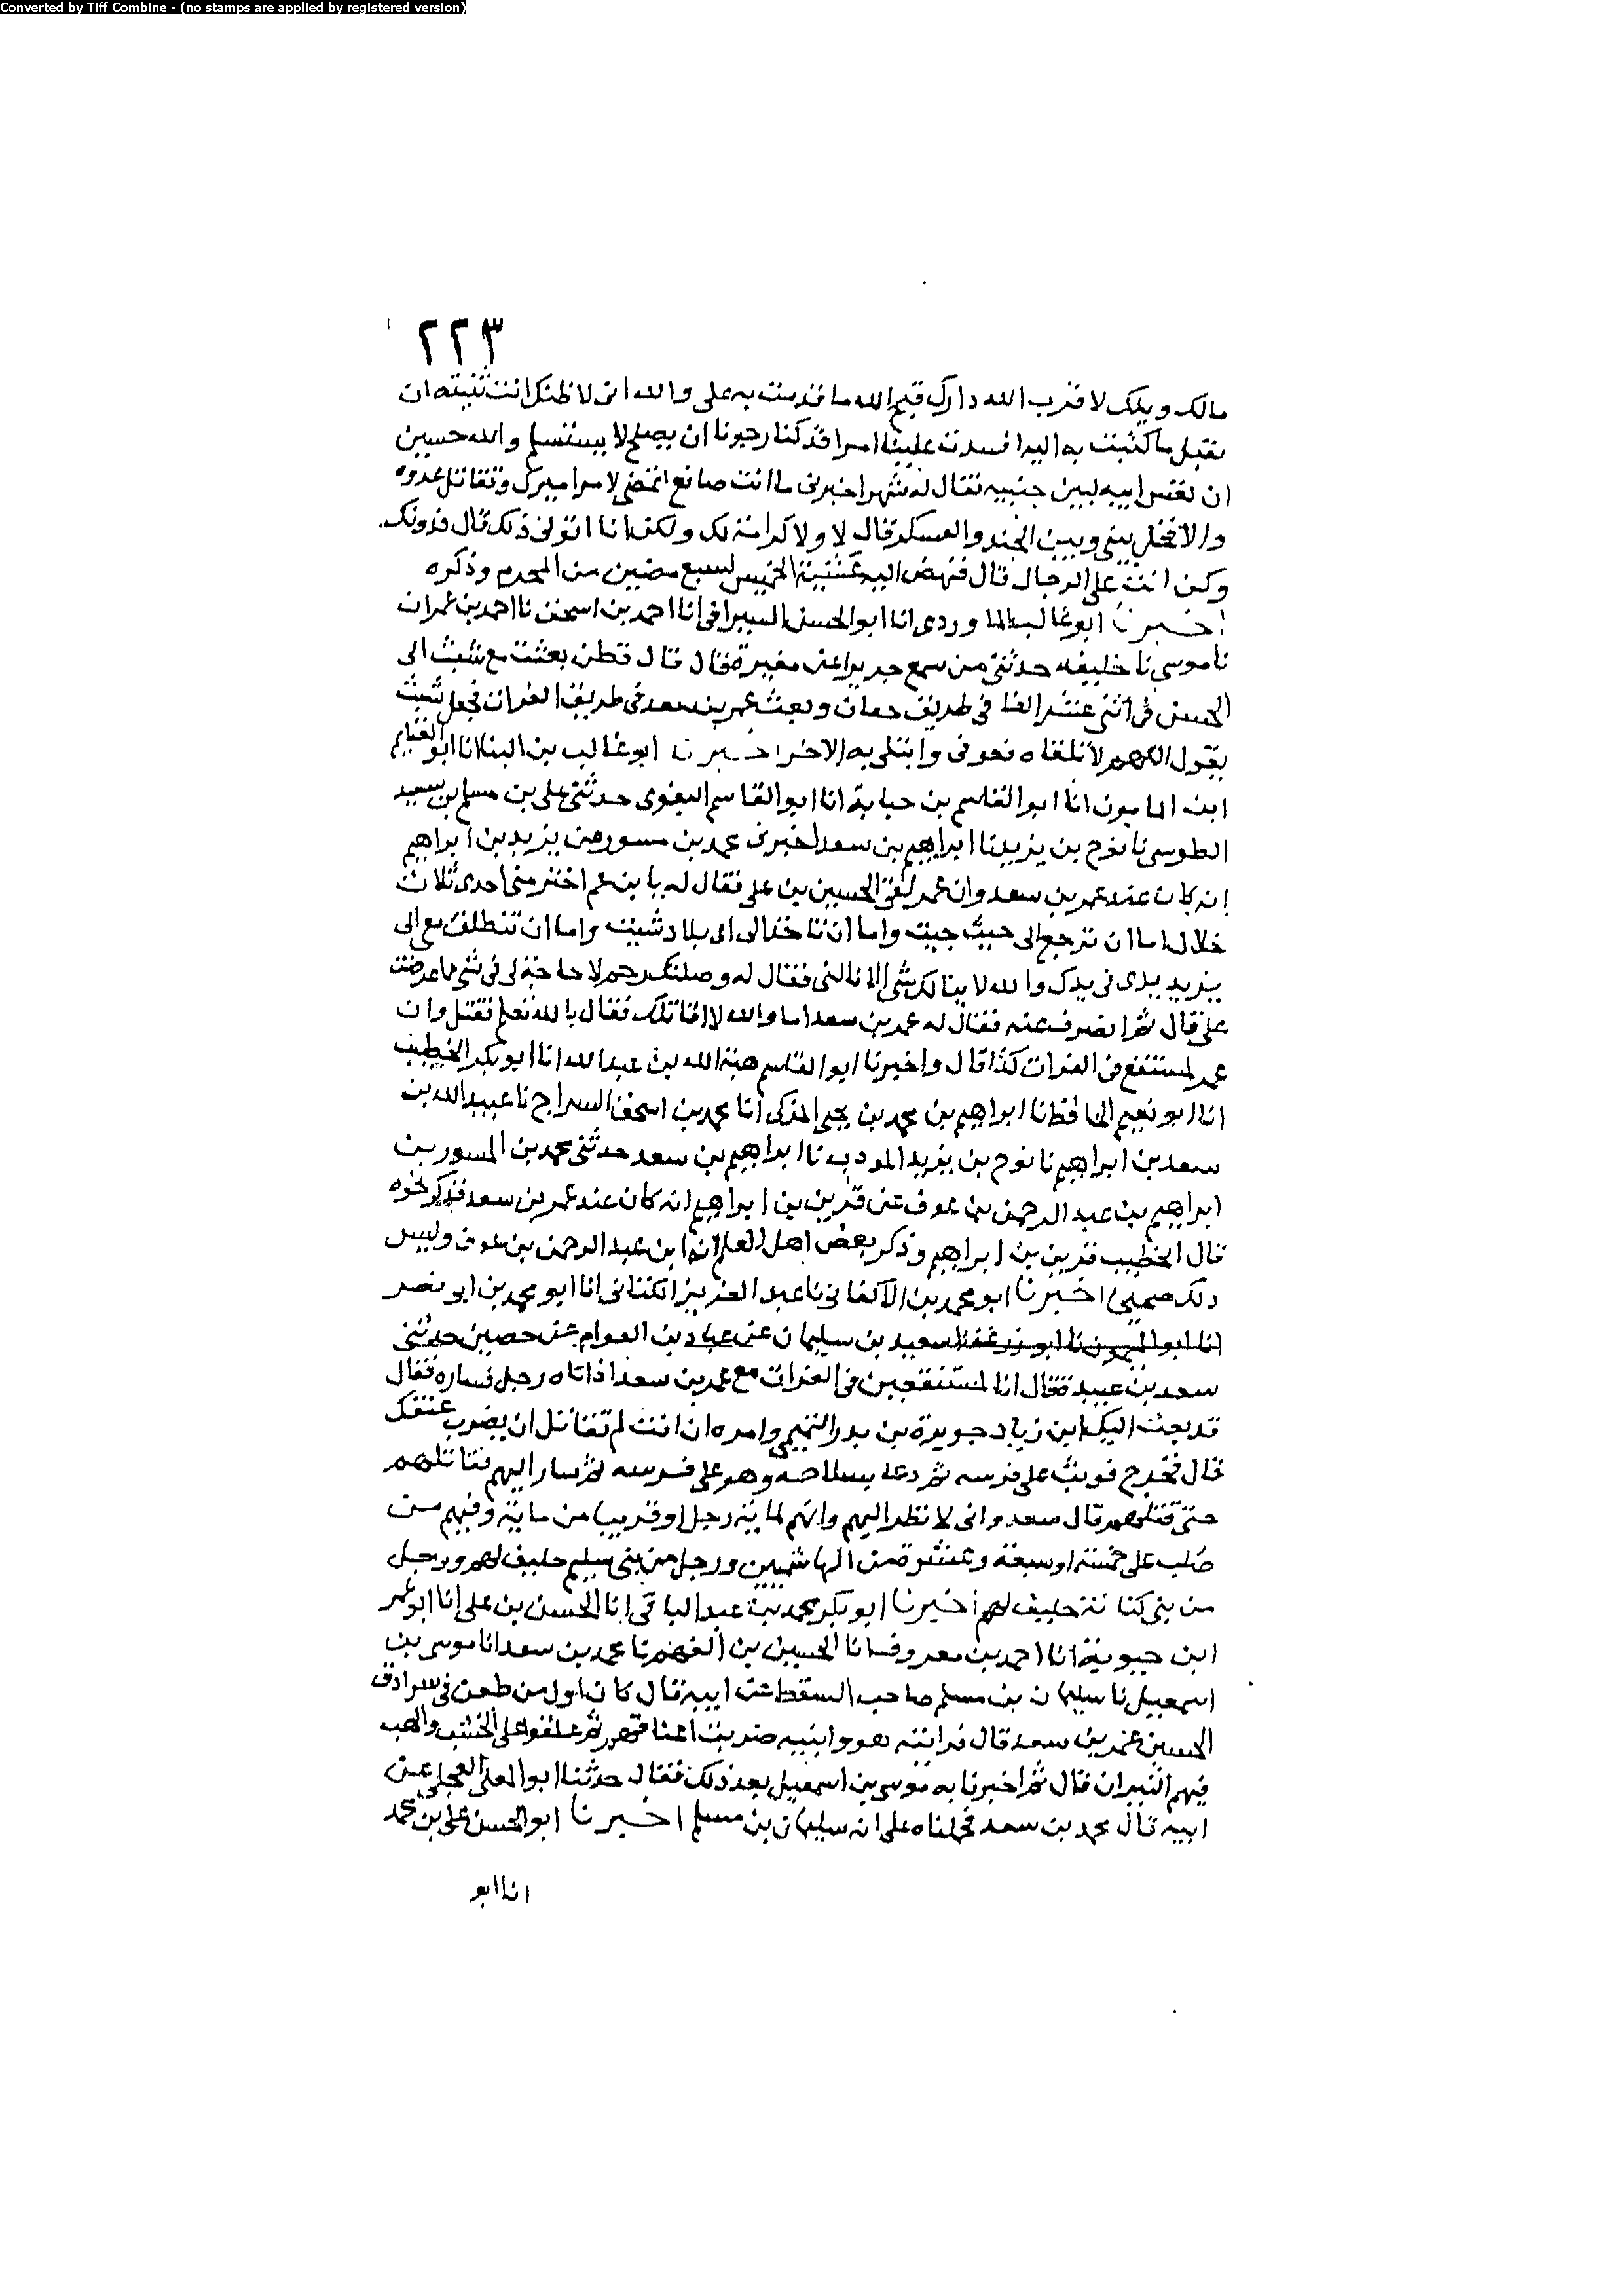 Converted by Tiff Combine - (no stamps are applied by registered version)
٢٢٣
مالك ويلك لا قرب الله دارك قبح الله ما قدمت به على والله انى لاظنك انت ثنيته ان
يقبل ما كتبت به اليه افسدت علينا امرا قد كنا رجونا ان يصلح لا يستسلم والله حسين
ان نفس ابيه لبين جنبيه فقال له شهر اخبرنى ما انت صانع اتمضى لامر اميرك وتقاتل عدوه
والا فخل بينى وبين الجند والعسكر قال لا ولا كرامة لك ولكن انا اتولى ذلك قال فدونك
وكن انت على الرجال قال فنهض اليه عشية الخميس لسبع مضين من المحرم وذكره
اخبرنا ابو غالب الماوردى انا ابو الحسن السيرافى انا احمد بن اسحق نا احمد بن عمران
نا موسى نا خليفه حدثنى من سمع جريرا عن مغيرة قال قال قطن بعثت مع شبث الى
الحسين فى اثنى عشر الفا فى طريق وبعث عمر بن سعد فى طريق الفرات فجعل شبث
يقول اللهم لا نلقاه فعوفى وابتلى به الاخر اخبرنا ابو غالب بن البنا انا ابو الغنايم
ابن المامون انا ابو القاسم بن حبابة انا ابو القاسم البغوى حدثنى على بن مسلم بن سعيد
الطوسى نا نوح بن يزيد نا ابراهيم بن سعد اخبرنى محمد بن مسور عن يزيد بن ابراهيم
انه كان عند عمر بن سعد وان عمر لقى الحسين بن على فقال له يا بن عم اختر منى احدى ثلاث
خلال اما ان ترجع الى حيث جيت واما ان تاخذ الى اى بلاد شيت واما ان تنطلق مع الى
يزيد يدى فى يدك والله لا ينالك شى الا نالنى فقال له وصلتك رحم لا حاجة لى فى شى مما عرضت
على قال ثم انصرف عنه فقال له عمر بن سعد اما والله لا اقاتلك فقال بالله نعلم نقتل وان
عمر لمستنقع فى الفرات كذا قال واخبرنا ابو القاسم هبة الله بن عبد الله انا ابو بكر الخطيب
انا ابو نعيم الحافظ انا ابراهيم بن محمد بن يحيى المزكى انا محمد بن اسحق السراج نا عبيد الله بن
سعد بن ابراهيم نا نوح بن يزيد المودب نا ابراهيم بن سعد حدثنى محمد بن المسور بن
ابراهيم بن عبد الرحمن بن عوف عن قرين بن ابراهيم انه كان عند عمر بن سعد فذكر نحوه
قال الخطيب قرين بن ابراهيم وذكر بعض اهل العلم انه ابن عبد الرحمن بن عوف وليس
ذلك اخبرنا ابو محمد بن الاكفانى نا عبد العزيز الكتانى انا ابو محمد بن ابى نصر
انا ابو الميمون نا ابو زرعة نا سعيد بن سليمان عن عباد بن العوام عن حصين حدثنى
سعد بن عبيد فقال انا لمستنقعين فى الفرات مع عمر بن سعد اذ اتاه رجل فساره فقال
قد بعث اليك ابن زياد جويرة بن بدر التميمى وامره ان انت لم تقاتل ان يضرب عنقك
قال فخرج فوثب على فرسه ثم دعا بسلاحه وهو على فرسه ثم سار اليهم فقاتلهم
حتى قتلهم قال سعد وانى لانظر اليهم وانهم لماية رجل او قريبا من ماية وفيهم من
صلب على خمسة او سبعة وعشرة من الهاشميين ورجل من بنى سليم حليف لهم ورجل
من بنى كنانة حليف لهم اخبرنا ابو بكر محمد بن عبد الباقى انا الحسن بن على انا ابو عمر
ابن حيوية انا احمد بن معروف نا الحسين بن الفهم نا محمد بن سعد انا موسى بن
اسمعيل نا سليمان بن مسلم صاحب السقط عن ابيه قال كان اول من طعن فى سرادق
الحسين عمر بن سعد قال فرايته هو وابنيه ضربت اعناقهم ثم علقوا على الخشب والهب
فيهم النيران قال ثم اخبرنا به موسى بن اسمعيل بعد ذلك فقال حدثنا ابو المعلى العجلى عن
ابيه قال محمد بن سعد فحملناه على انه سليمان بن مسلم اخبرنا ابو الحسن على بن محمد
انا ابو